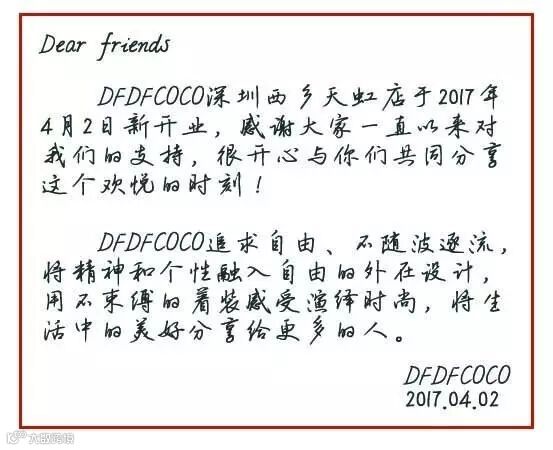 Dear friends
DFDFCOCO深圳西乡天虹店于2017年
4月2日新开业，感谢大家一直以来对
我们的支持，很开心与你们共同分享
这个欢悦的时刻！
DFDFCOCO追求自由、不随波逐流，
将精神和个性融入自由的外在设计，
用不束缚的着装感受演绎时尚，将生
活中的美好分享给更多的人。
DFDFCOCO
2017.04.02
大数跨境